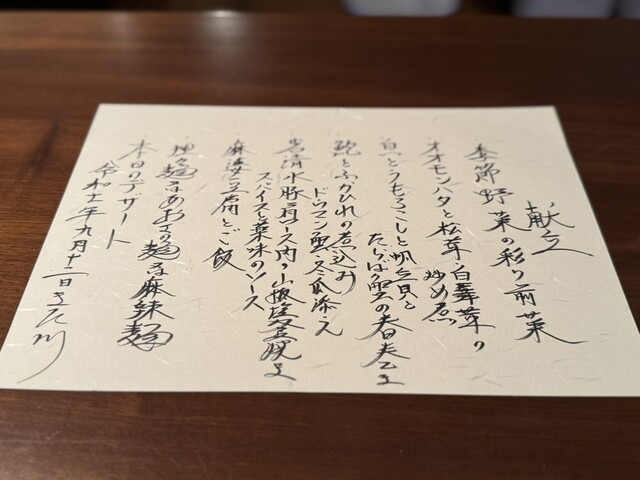 献立
季節野菜の彩り前菜
オオモンハタと松茸・白舞茸の
炒め煮
白とうもろこしと帆立貝と
たらば蟹の春巻
鮑とふかひれの煮込み
ドウマン蟹・冬瓜添え
岩清水豚肩ロース肉の山椒釜焼き
スパイスと薬味のソース
麻婆豆腐とご飯
担々麺 又は あおさの麺 又は 麻辣麺
本日のデザート
令和七年九月十二日